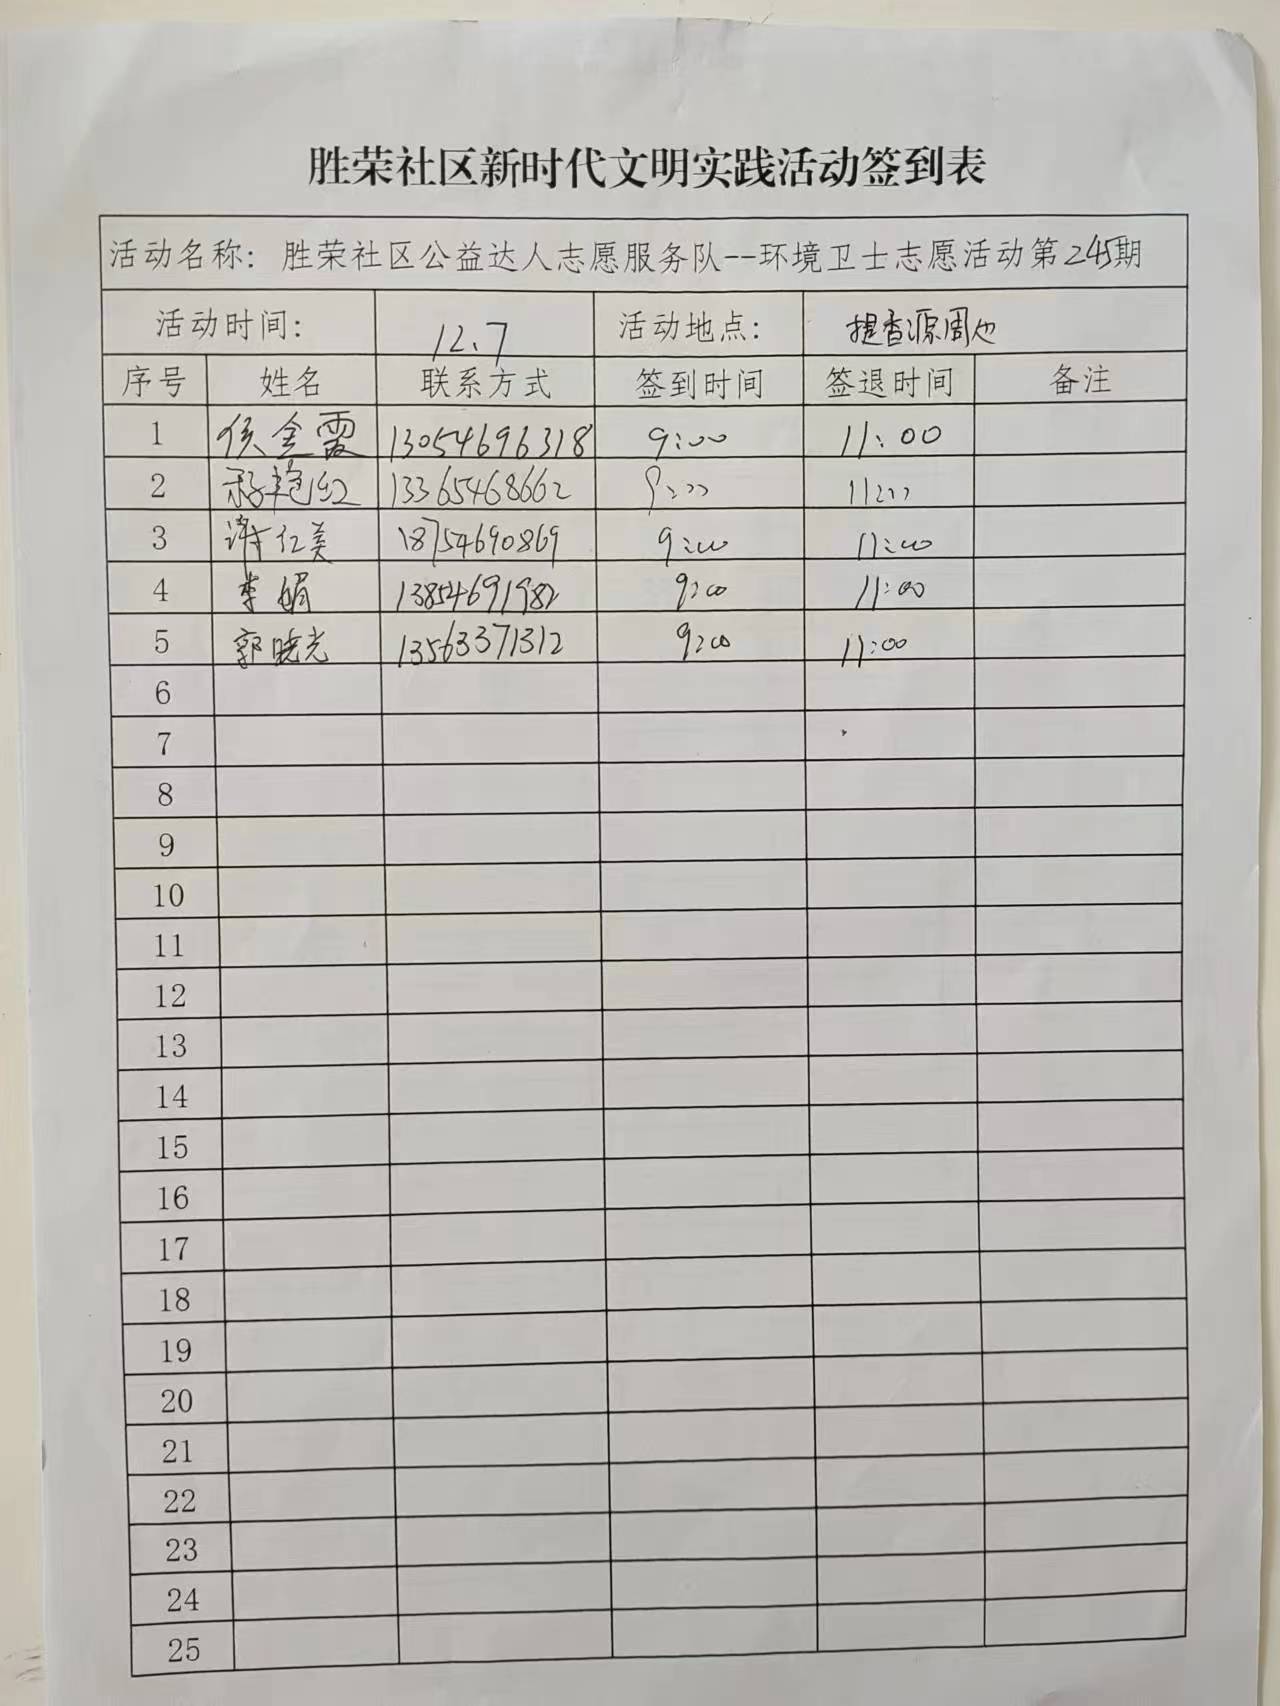 胜荣社区新时代文明实践活动签到表
活动名称：胜荣社区公益达人志愿服务队--环境卫士志愿活动第245期
活动时间： 12.7 活动地点： 提香源周边
序号 姓名 联系方式 签到时间 签退时间 备注
1 侯金霞 13054696318 9:00 11:00
2 艳红 13365468662 9:00 11:00
3 红美 18754690869 9:00 11:00
4 李娟 13854691982 9:00 11:00
5 郭晓光 13563371312 9:00 11:00
6
7
8
9
10
11
12
13
14
15
16
17
18
19
20
21
22
23
24
25